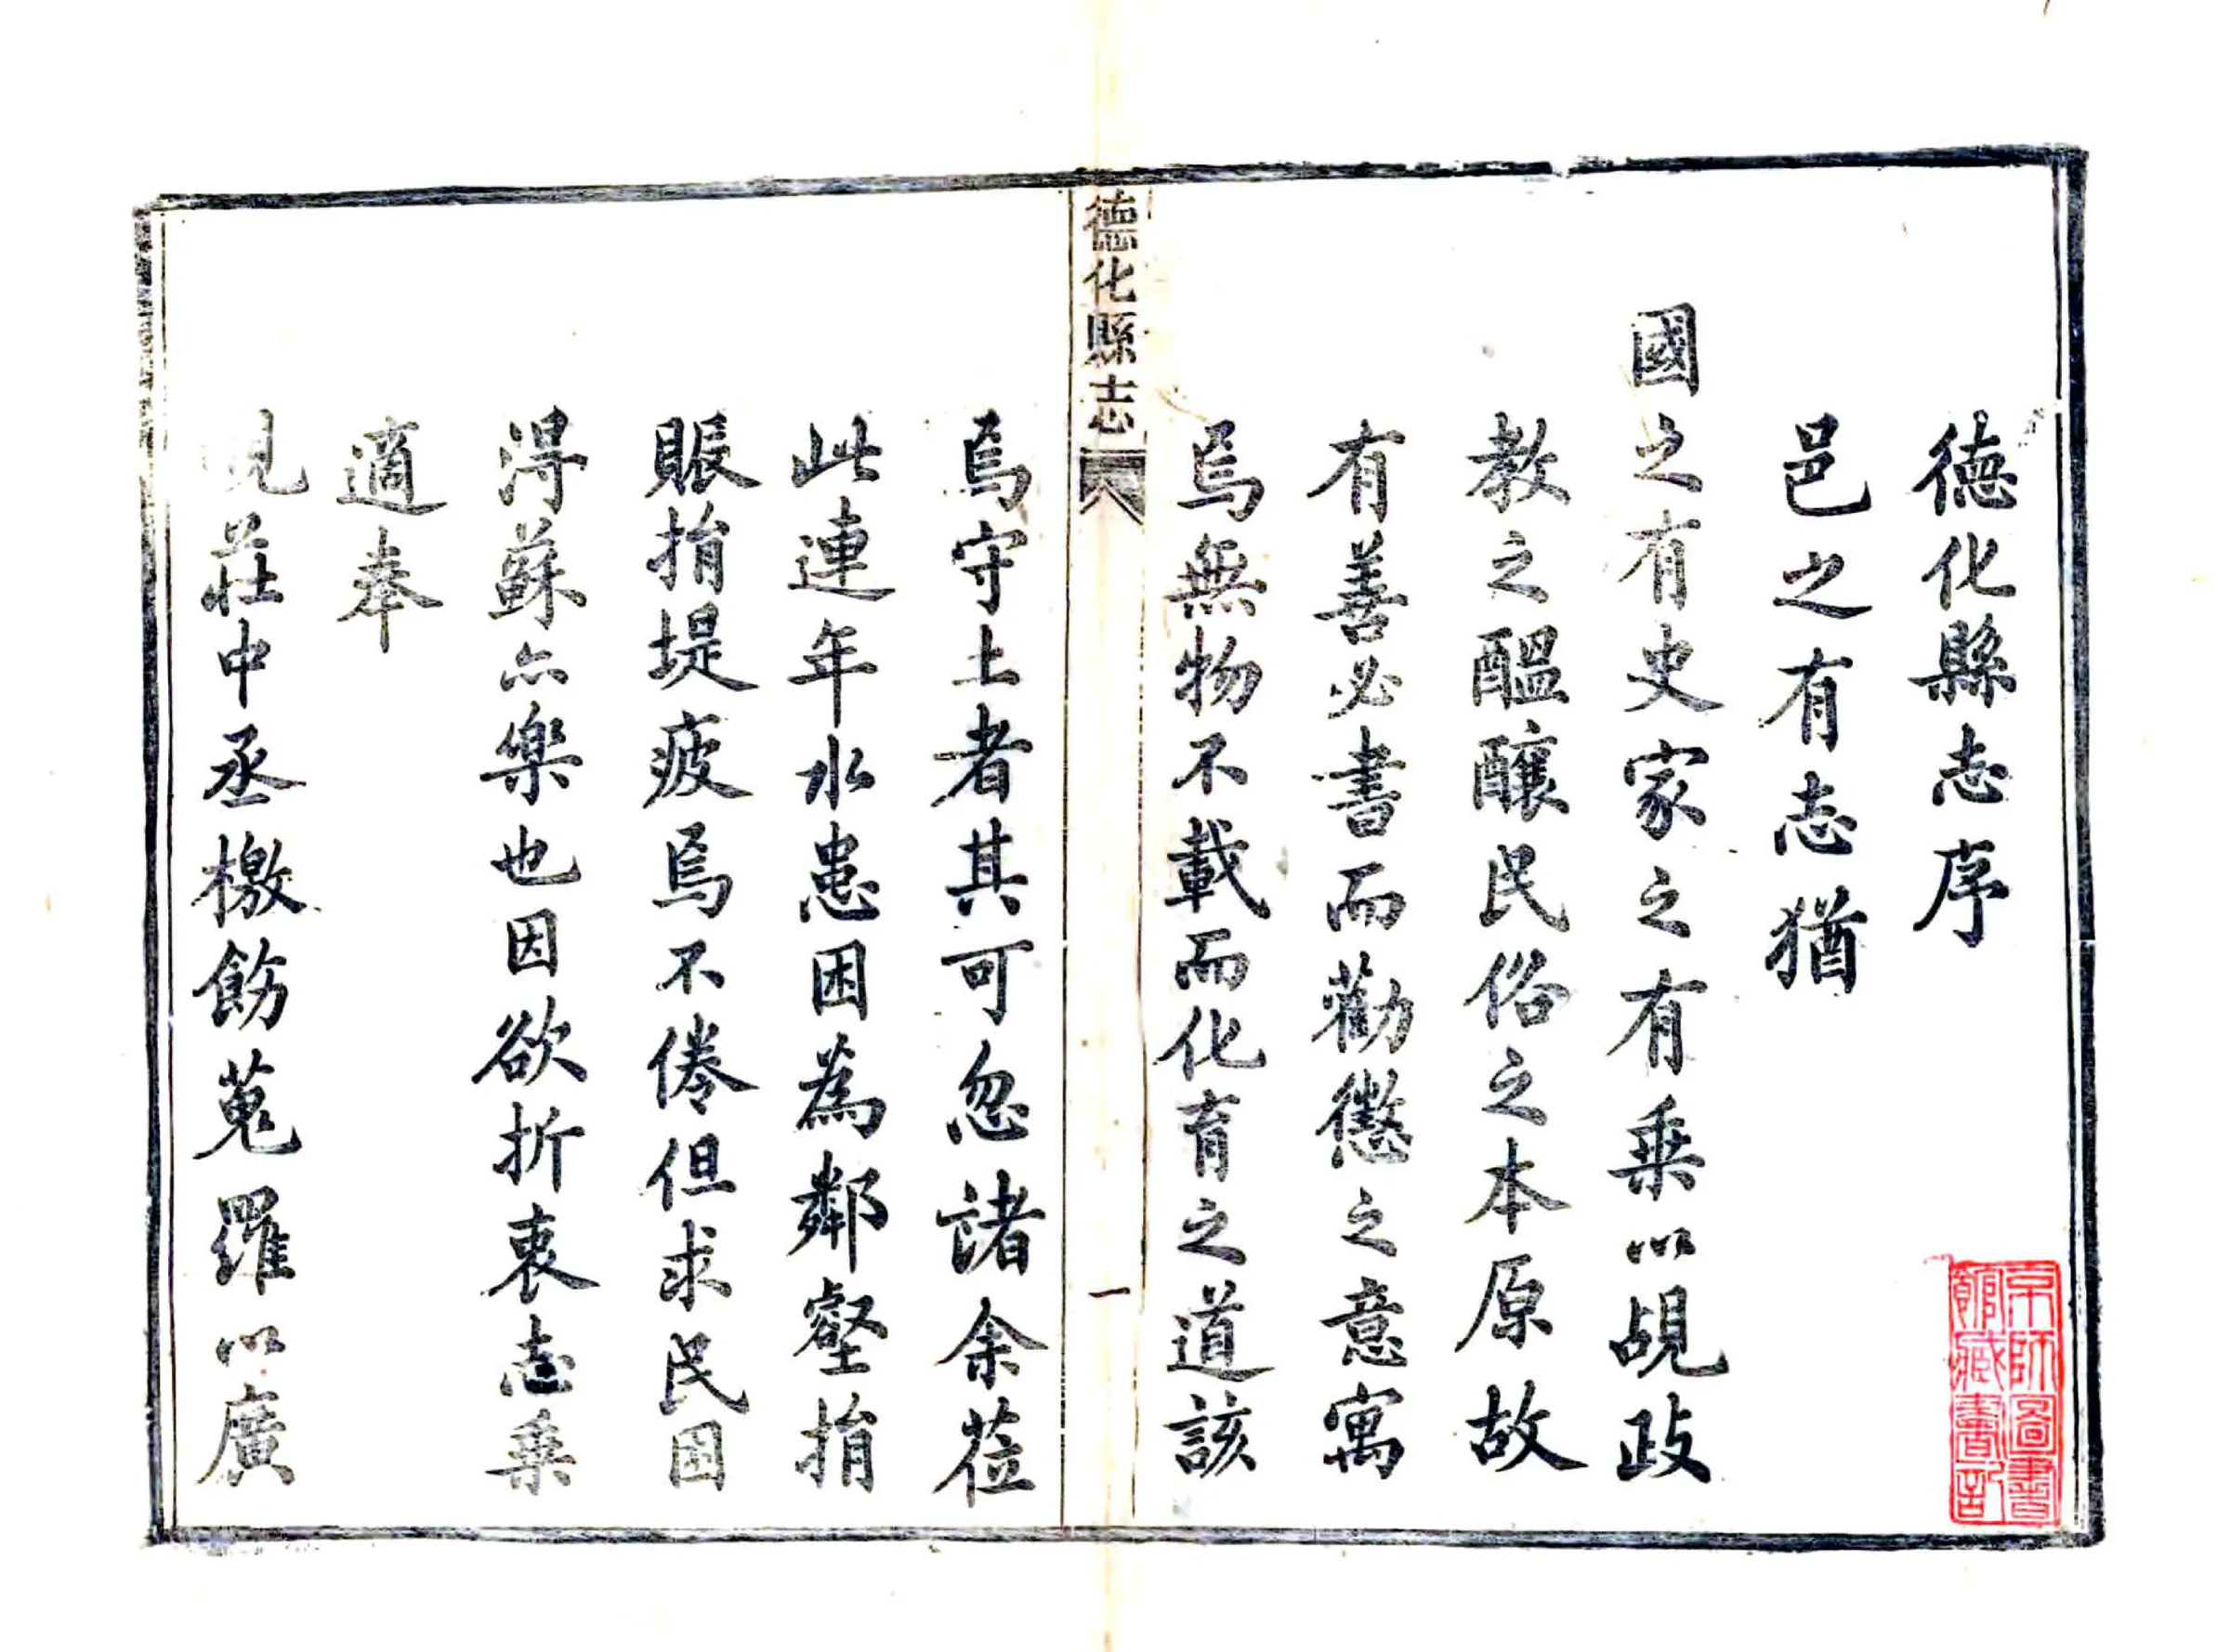 德化縣志序
邑之有志猶
國之有史家之有乗以覘政
教之醖釀民俗之本原故
有善必書而勸懲之意寓
焉無物不載而化育之道該
德化縣志
一
焉守土者其可忽諸余莅
此連年水患困為鄰壑捐
賑捐堤疲焉不倦但求民困
淂蘇亦樂也因欲折衷志乗
適奉
現莊中丞檄飭蒐羅以廣
京師圖書
館藏書記